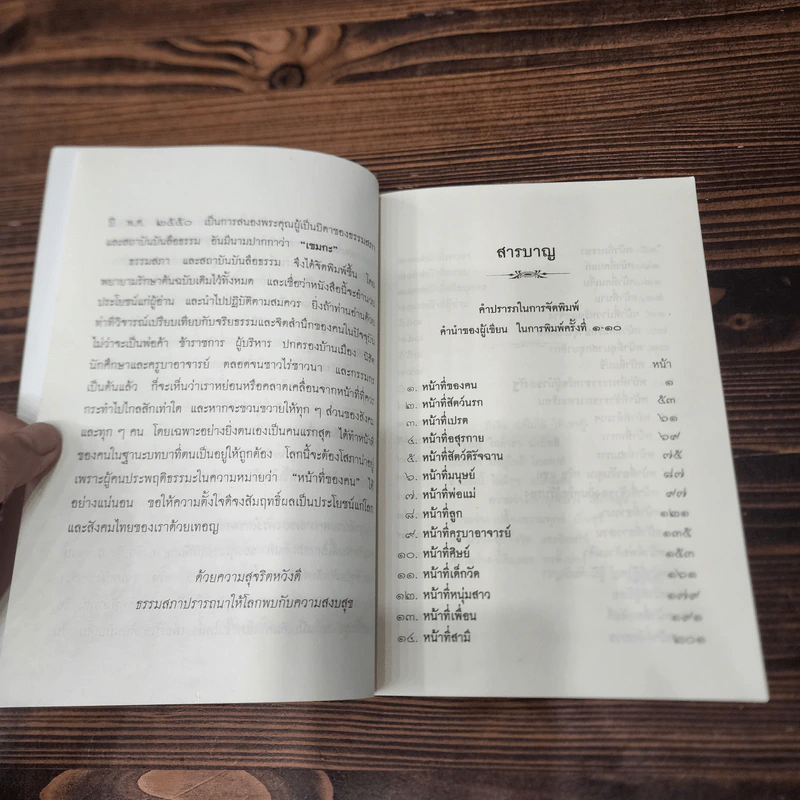 ปี พ.ศ. ๒๕๕๐ เป็นการสนองพระคุณผู้เป็นบิดาของธรรมสภา
และสถาบันบันลือธรรม อันมีนามปากกาว่า "เขมกะ"
ธรรมสภา และสถาบันบันลือธรรม จึงได้จัดพิมพ์ขึ้น โดย
พยายามรักษาต้นฉบับเดิมไว้ทั้งหมด และเชื่อว่าหนังสือนี้จะอำนวย
ประโยชน์แก่ผู้อ่าน และนำไปปฏิบัติตามสมควร ยิ่งถ้าท่านอ่านด้วย
ท่าทีวิจารณ์เปรียบเทียบกับจริยธรรมและจิตสำนึกของคนในปัจจุบัน
ไม่ว่าจะเป็นพ่อค้า ข้าราชการ ผู้บริหาร ปกครองบ้านเมือง นิสิต
นักศึกษาและครูบาอาจารย์ ตลอดจนชาวไร่ชาวนา และกรรมกร
เป็นต้นแล้ว ก็จะเห็นว่าเราหย่อนหรือคลาดเคลื่อนจากหน้าที่ที่ควร
กระทำไปไกลสักเท่าใด และหากจะชวนขวายให้ทุก ๆ ส่วนของสังคม
และทุก ๆ คน โดยเฉพาะอย่างยิ่งตนเองเป็นคนแรกสุด ได้ทำหน้าที่
ของคนในฐานะบทบาที่ตนเป็นอยู่ให้ถูกต้อง โลกนี้จะต้องโสภาน่าอยู่
เพราะผู้คนประพฤติธรรมะในความหมายว่า "หน้าที่ของคน" ได้
อย่างแน่นอน ขอให้ความตั้งใจดีจงสัมฤทธิ์ผลเป็นประโยชน์แก่โลก
และสังคมไทยของเราด้วยเทอญ
ด้วยความสุจริตหวังดี
ธรรมสภาปรารถนาให้โลกพบกับความสงบสุข
สารบาญ
คำปรารภในการจัดพิมพ์
คำนำของผู้เขียน ในการพิมพ์ครั้งที่ ๑-๑๐
หน้า
๑. หน้าที่ของคน ๑
๒. หน้าที่สัตว์นรก ๕๓
๓. หน้าที่เปรต ๖๑
๔. หน้าที่อสุรกาย ๖๙
๕. หน้าที่สัตว์ดิรัจฉาน ๗๕
๖. หน้าที่มนุษย์ ๘๗
๗. หน้าที่พ่อแม่ ๙๗
๘. หน้าที่ลูก ๑๒๑
๙. หน้าที่ครูบาอาจารย์ ๑๓๕
๑๐. หน้าที่ศิษย์ ๑๕๓
๑๑. หน้าที่เด็กวัด ๑๖๑
๑๒. หน้าที่หนุ่มสาว ๑๗๙
๑๓. หน้าที่เพื่อน ๑๙๑
๑๔. หน้าที่สามี ๒๐๑